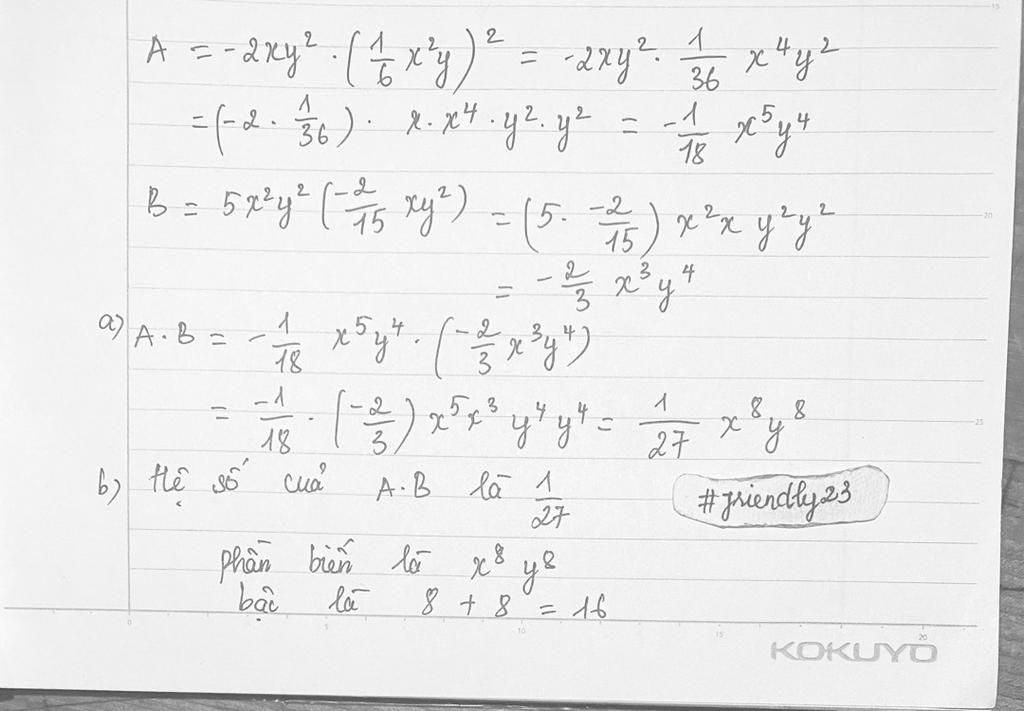 A = -2xy² · (1/6 x²y)² = -2xy² · 1/36 x⁴y²
= (-2 · 1/36) · x · x⁴ · y² · y² = -1/18 x⁵y⁴
B = 5x²y² (-2/15 xy²) = (5 · -2/15) x²x y²y²
= -2/3 x³y⁴
a) A · B = -1/18 x⁵y⁴ · (-2/3 x³y⁴)
= -1/18 · (-2/3) x⁵x³ y⁴y⁴ = 1/27 x⁸y⁸
b) Hệ số cuả A·B là 1/27
#friendly23
phần biến là x⁸ y⁸
bậc là 8 + 8 = 16
KOKUYO
15
20
25
0 5 10 15 20